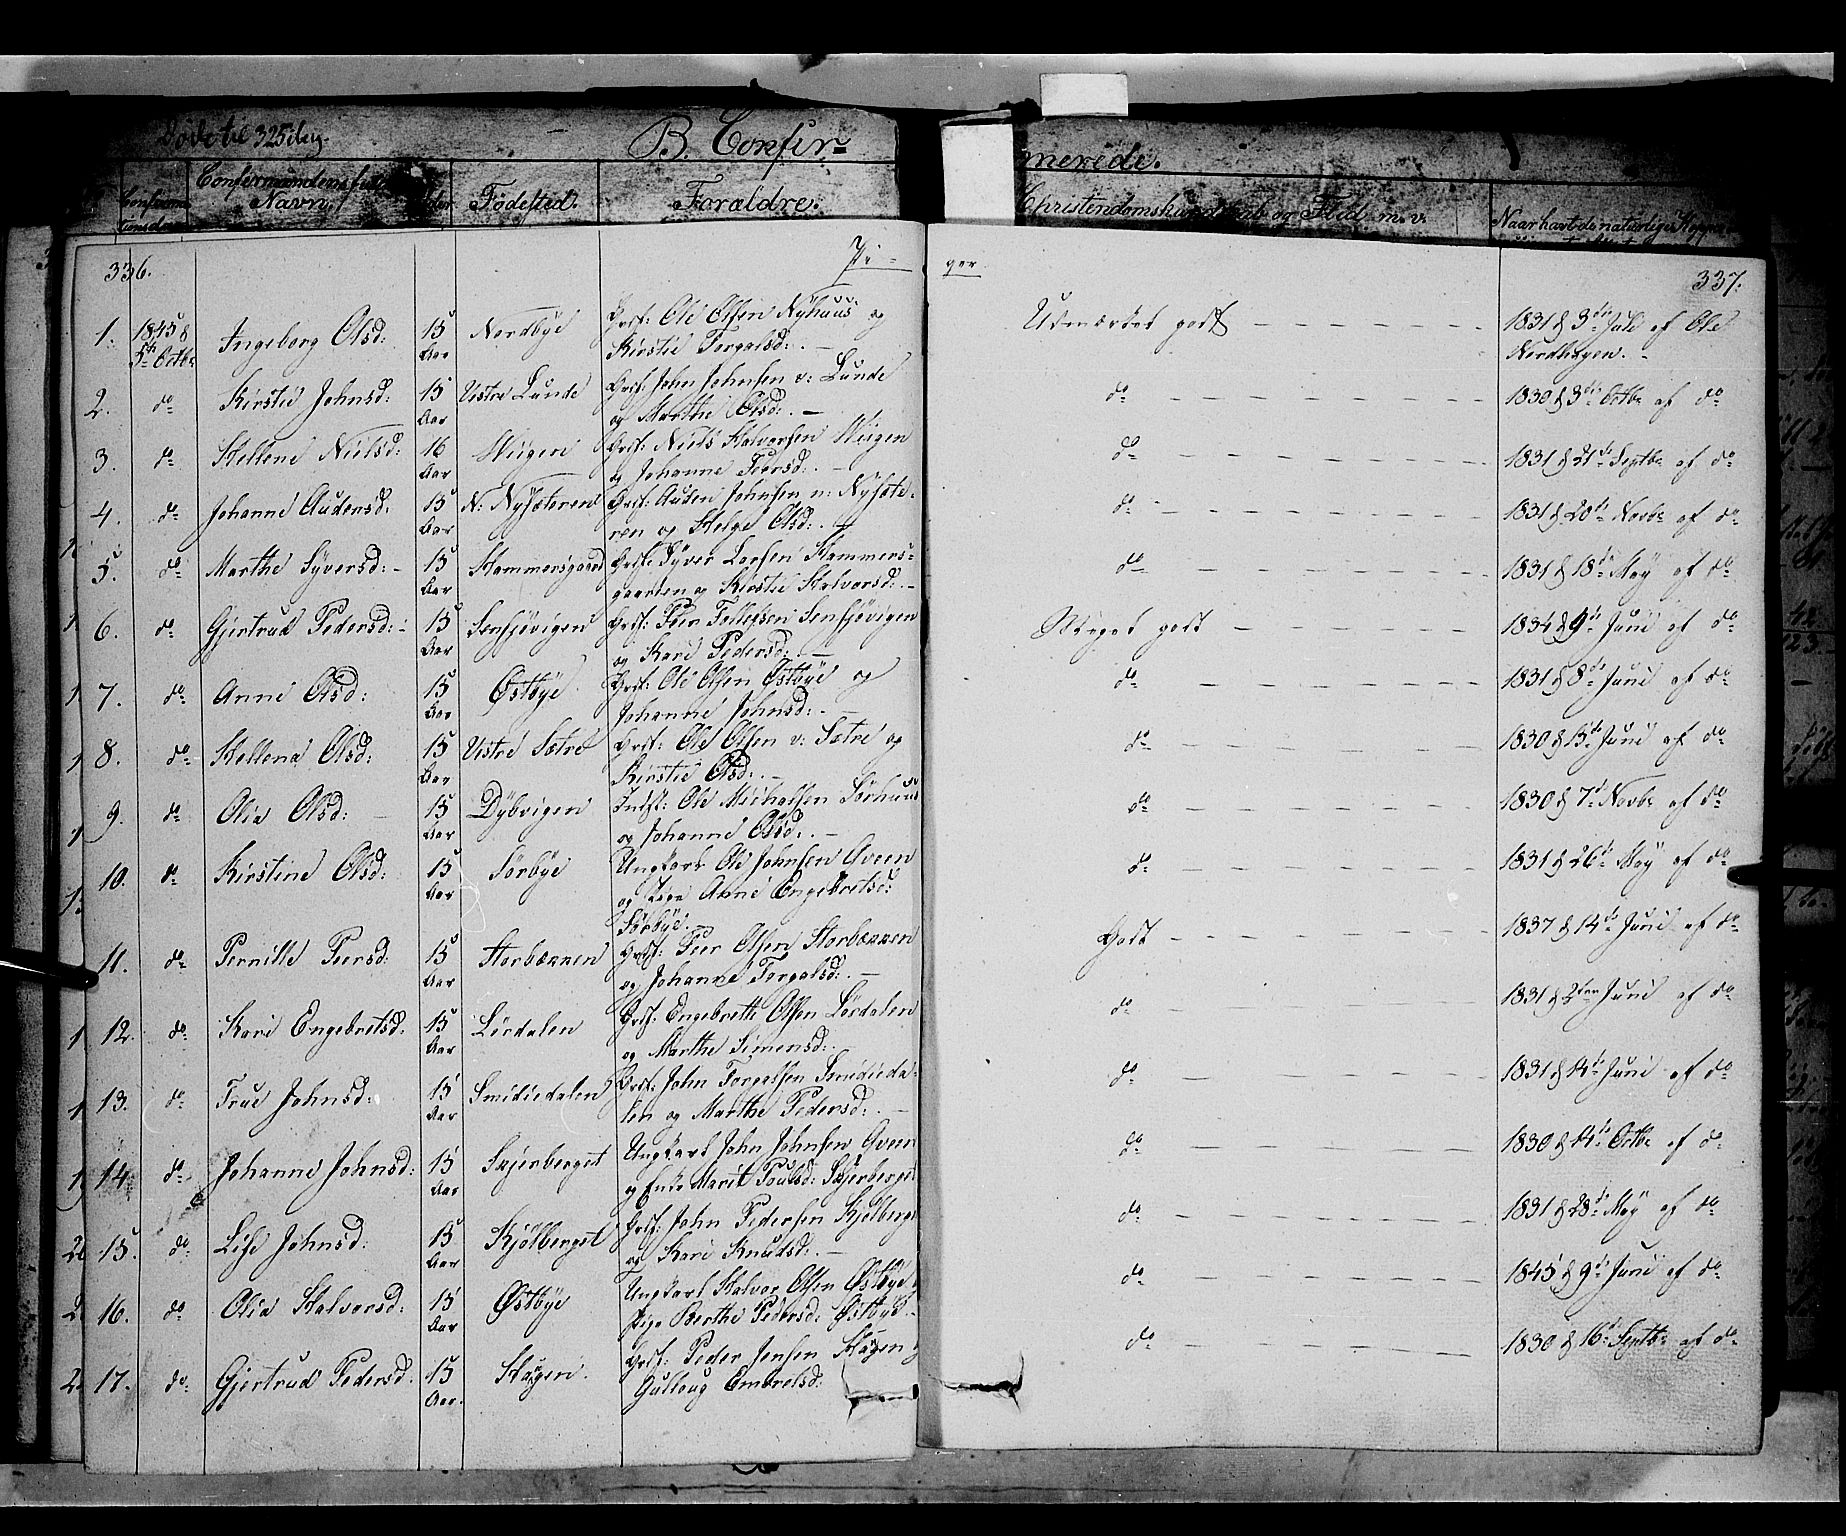 Døbte til 325 deg.
B. Confir-
merede.
Confirma-
tionsda-
Confirmandens fulde
Navn.
Alder
Fødested.
Forældre.
Christendomskundskab og Flid m. v.
Naar havt de naturlige Kopper
336.
Pi-
ger
337.
1. 1845 & 5te Octbr Ingeborg Olsd: 15 Aar Nordbye Grdf: Ole Olsen Nyhuus og
Kirstie Torgalsd: . —
Udmærket godt 1831 & 3die Juli af Ole
Nordhagen. -
2. do Kirstie Johnsd: 15 Aar Vestre Lunde Grdf: John Johnsen v: Lunde
og Marthe Olsd: . —
do 1830 & 3die Octbr af do
3. do Hellene Nielsd: 16 Aar Wiigen Grdf: Niels Halvorsen Wiigen
og Johanne Peersd: . —
do 1831 & 21de Septbr af do
4. do Johanne Audensd: 15 Aar N: Nysæteren Grdf: Auden Johnsen n: Nysæte-
ren og Helge Olsd: . —
do 1831 & 20de Novbr af do
5. do Marthe Syversd: - 15 Aar Hammersgaard Grdf: Syver Larsen Hammers-
gaarden og Kirstie Halvorsd: . —
do 1831 & 18de May af do
6. do Gjertrud Pedersd: - 15 Aar Sensjøvigen Grdf: Peer Tollefsen Sensjøvigen
og Kari Pedersd: —
Meget godt 1834 & 9de Juni af do
7. do Anne Olsd: 15 Aar Østbye Grdf: Ole Olsen Østbye og
Johanne Johnsd: . —
do 1831 & 8de Juni af do
8. do Hellena Olsd: 15 Aar Vestre Sætre Grdf: Ole Olsen v: Sætre og
Kirstie Olsd: . —
do 1830 & 15de Juni af do
9. do Olia Olsd: 15 Aar Dybvigen Indst: Ole Michelsen Sørhuus
og Johanne Olsd: . —
do 1830 & 7de Novbr af do
10. do Kirstine Olsd: 15 Aar Sørbye Ungkarl Ole Johnsen Qveen
og Pige Anne Engebretsd:
Sørbye. —
do 1831 & 26de May af do
11. do Pernille Peersd: 15 Aar Storbækken Grdf: Peer Olsen Storbækken
og Johanne Torgalsd: . —
Godt 1837 & 14de Juni af do
12. do Kari Engebretsd: 15 Aar Lørdalen Grdf: Engebreth Olsen Lørdalen
og Marthe Simensd: . —
do 1831 & 2den Juni af do
13. do Frue Johnsd: 15 Aar Smidiedalen Grdf: John Torgalsen Smidieda-
len og Marthe Pedersd: . —
do 1831 & 14de Juni af do
14. do Johanne Johnsd: 15 Aar Skjerberget Ungkarl John Johnsen Qveen
og Enke Marit Poulsd: Skjerberget
do 1830 & 14de Octbr af do
15. do Lise Johnsd: 15 Aar Kjølberget Grdf: John Pedersen Kjølberget
og Kari Knudsd: . —
do 1831 & 28de May af do
16. do Olia Halvorsd: 15 Aar Østbye Ungkarl Halvor Olsen Østbye
Pige Berthe Pedersd: Østbye
do 1845 & 9de Juni af do
17. do Gjertrud Pedersd: 15 Aar. Hagen. Grdf: Peder Jensen Hagen
Gulloug Embretsd:
do 1830 & 16de Septbr af do